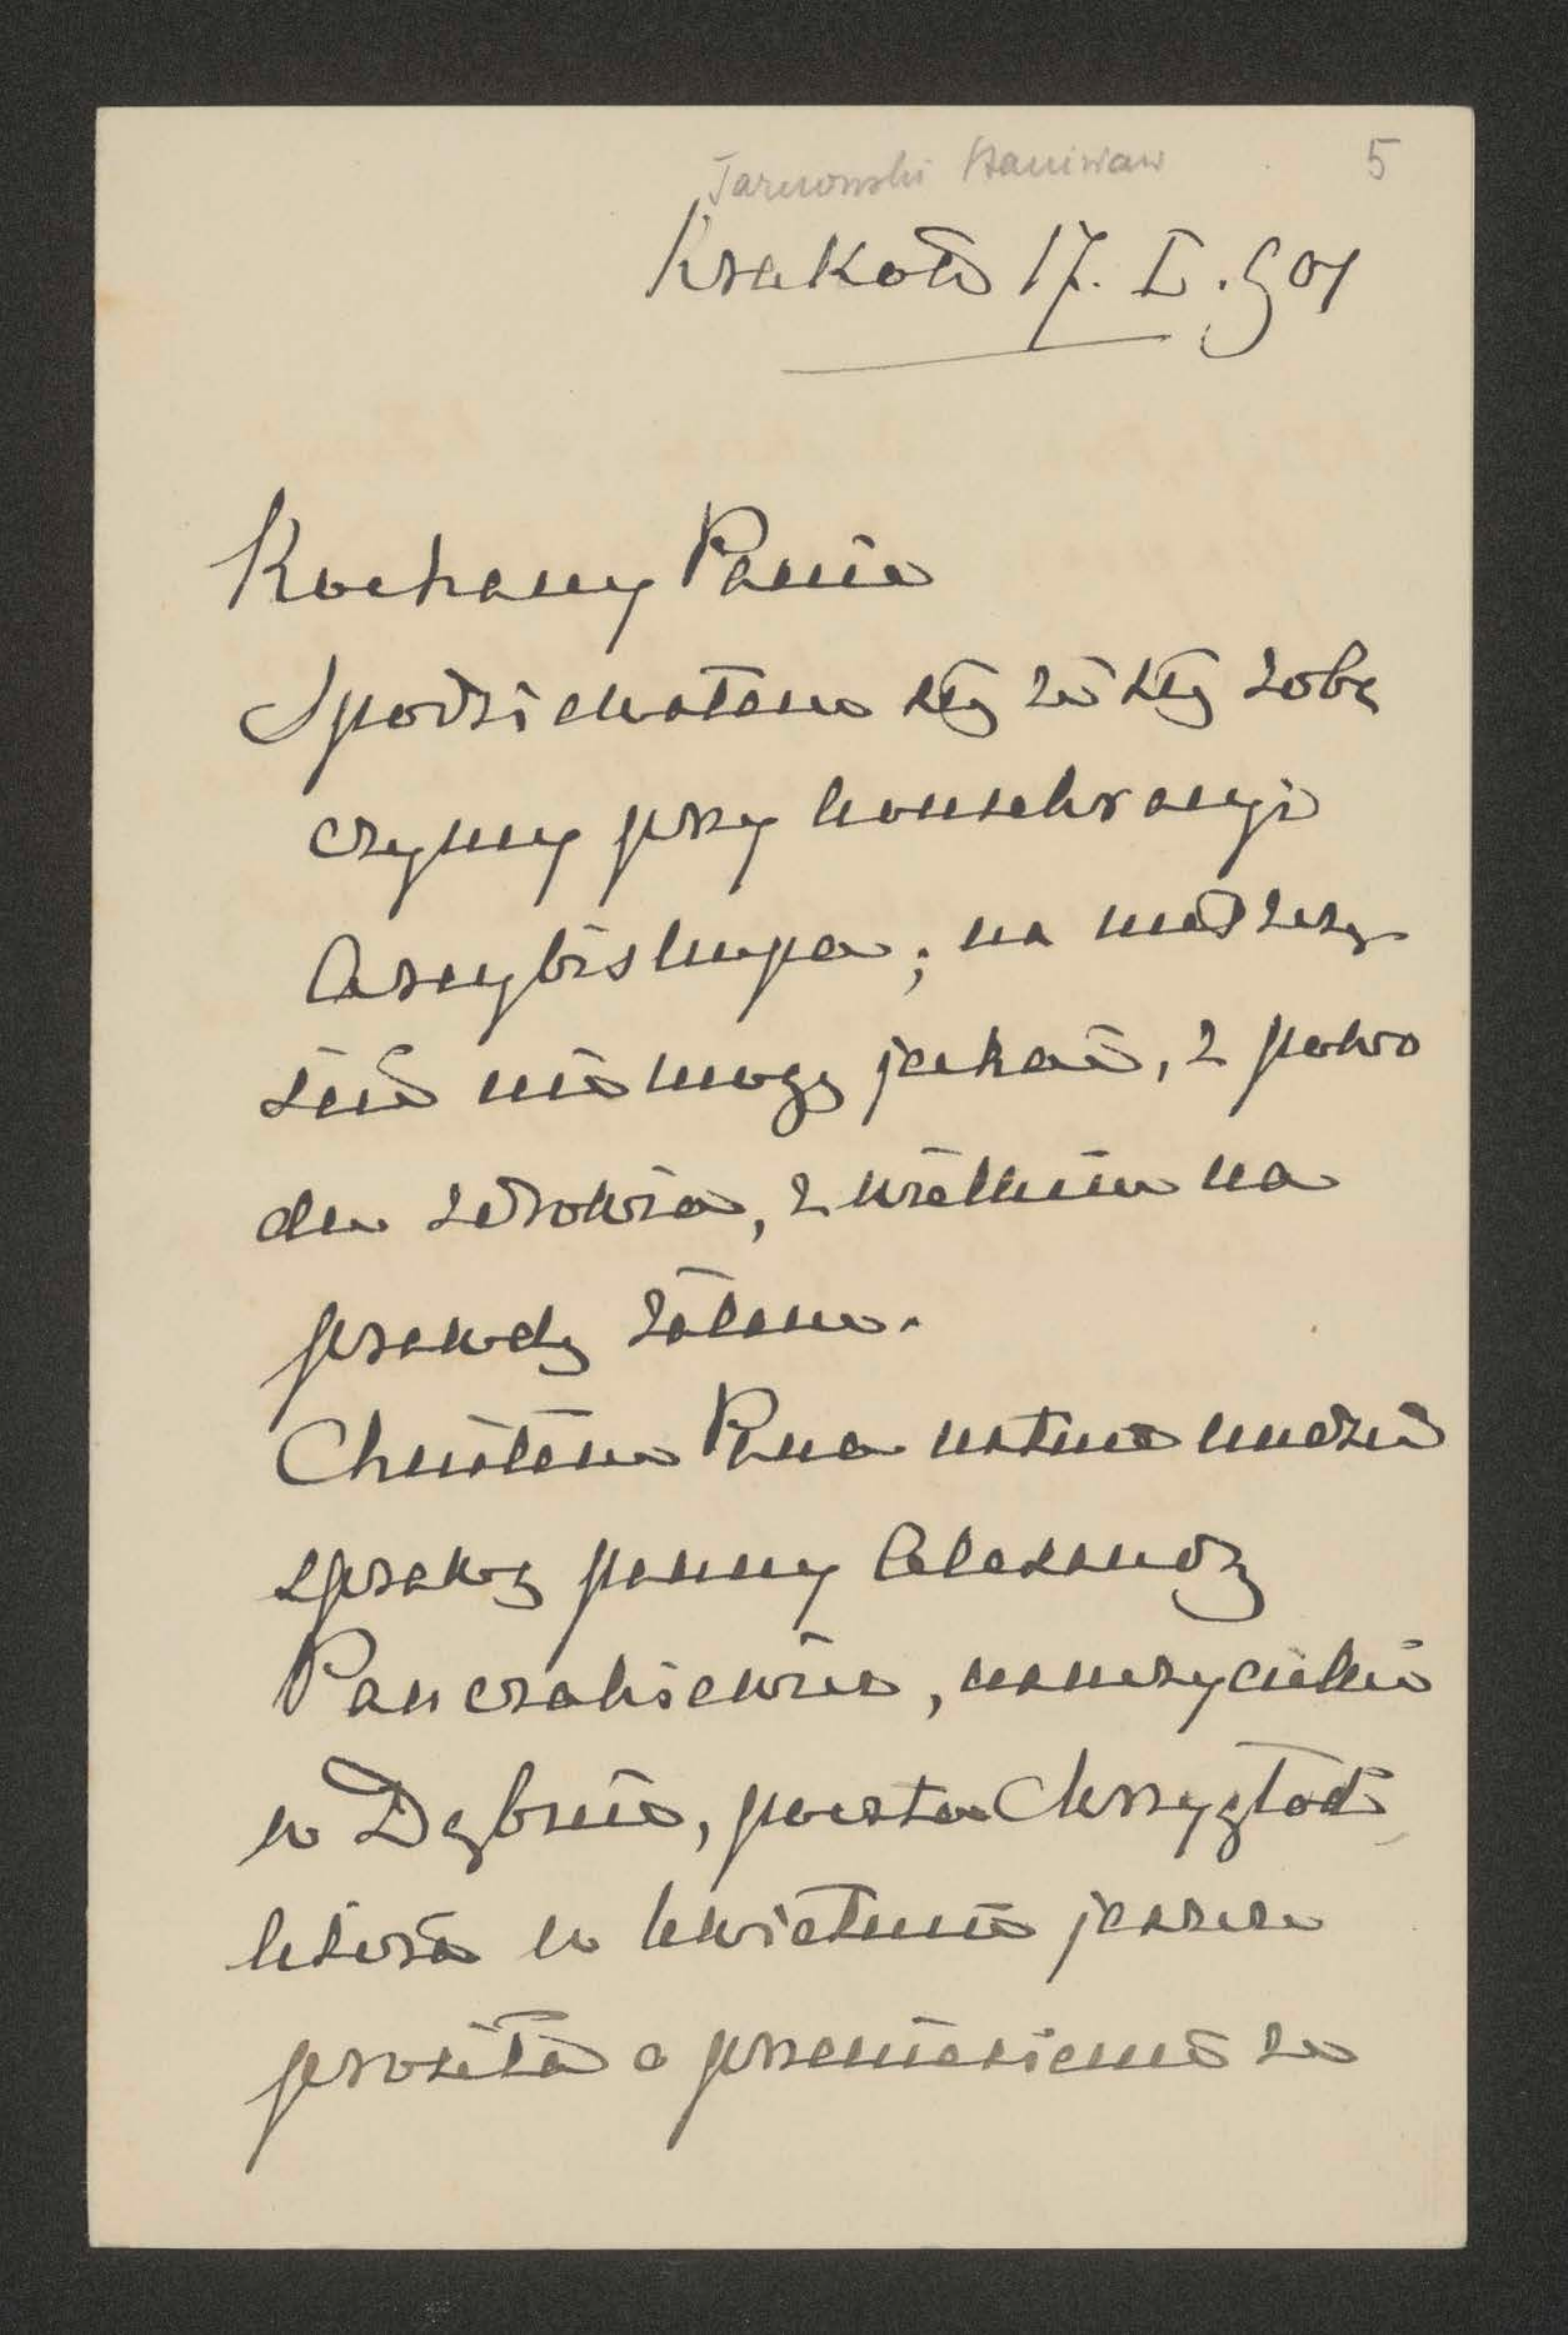 Tarnowski Stanisław 5
Kraków 17. I. 901
Kochany Panie
Spodziewałem się że się zoba
czymy przy konsekracyi
Arcybiskupa; na nieszczę
ście nie mogę jechać, z powo
du zdrowia, z wielkim na
prawdę żalem.
Chciałem Pana ustnie nudzić
sprawą panny Alexandry
Panczakiewicz, nauczycielki
w Dąbrnie, poczta
która w kwietniu jeszcze
prosiła o przeniesienie ze